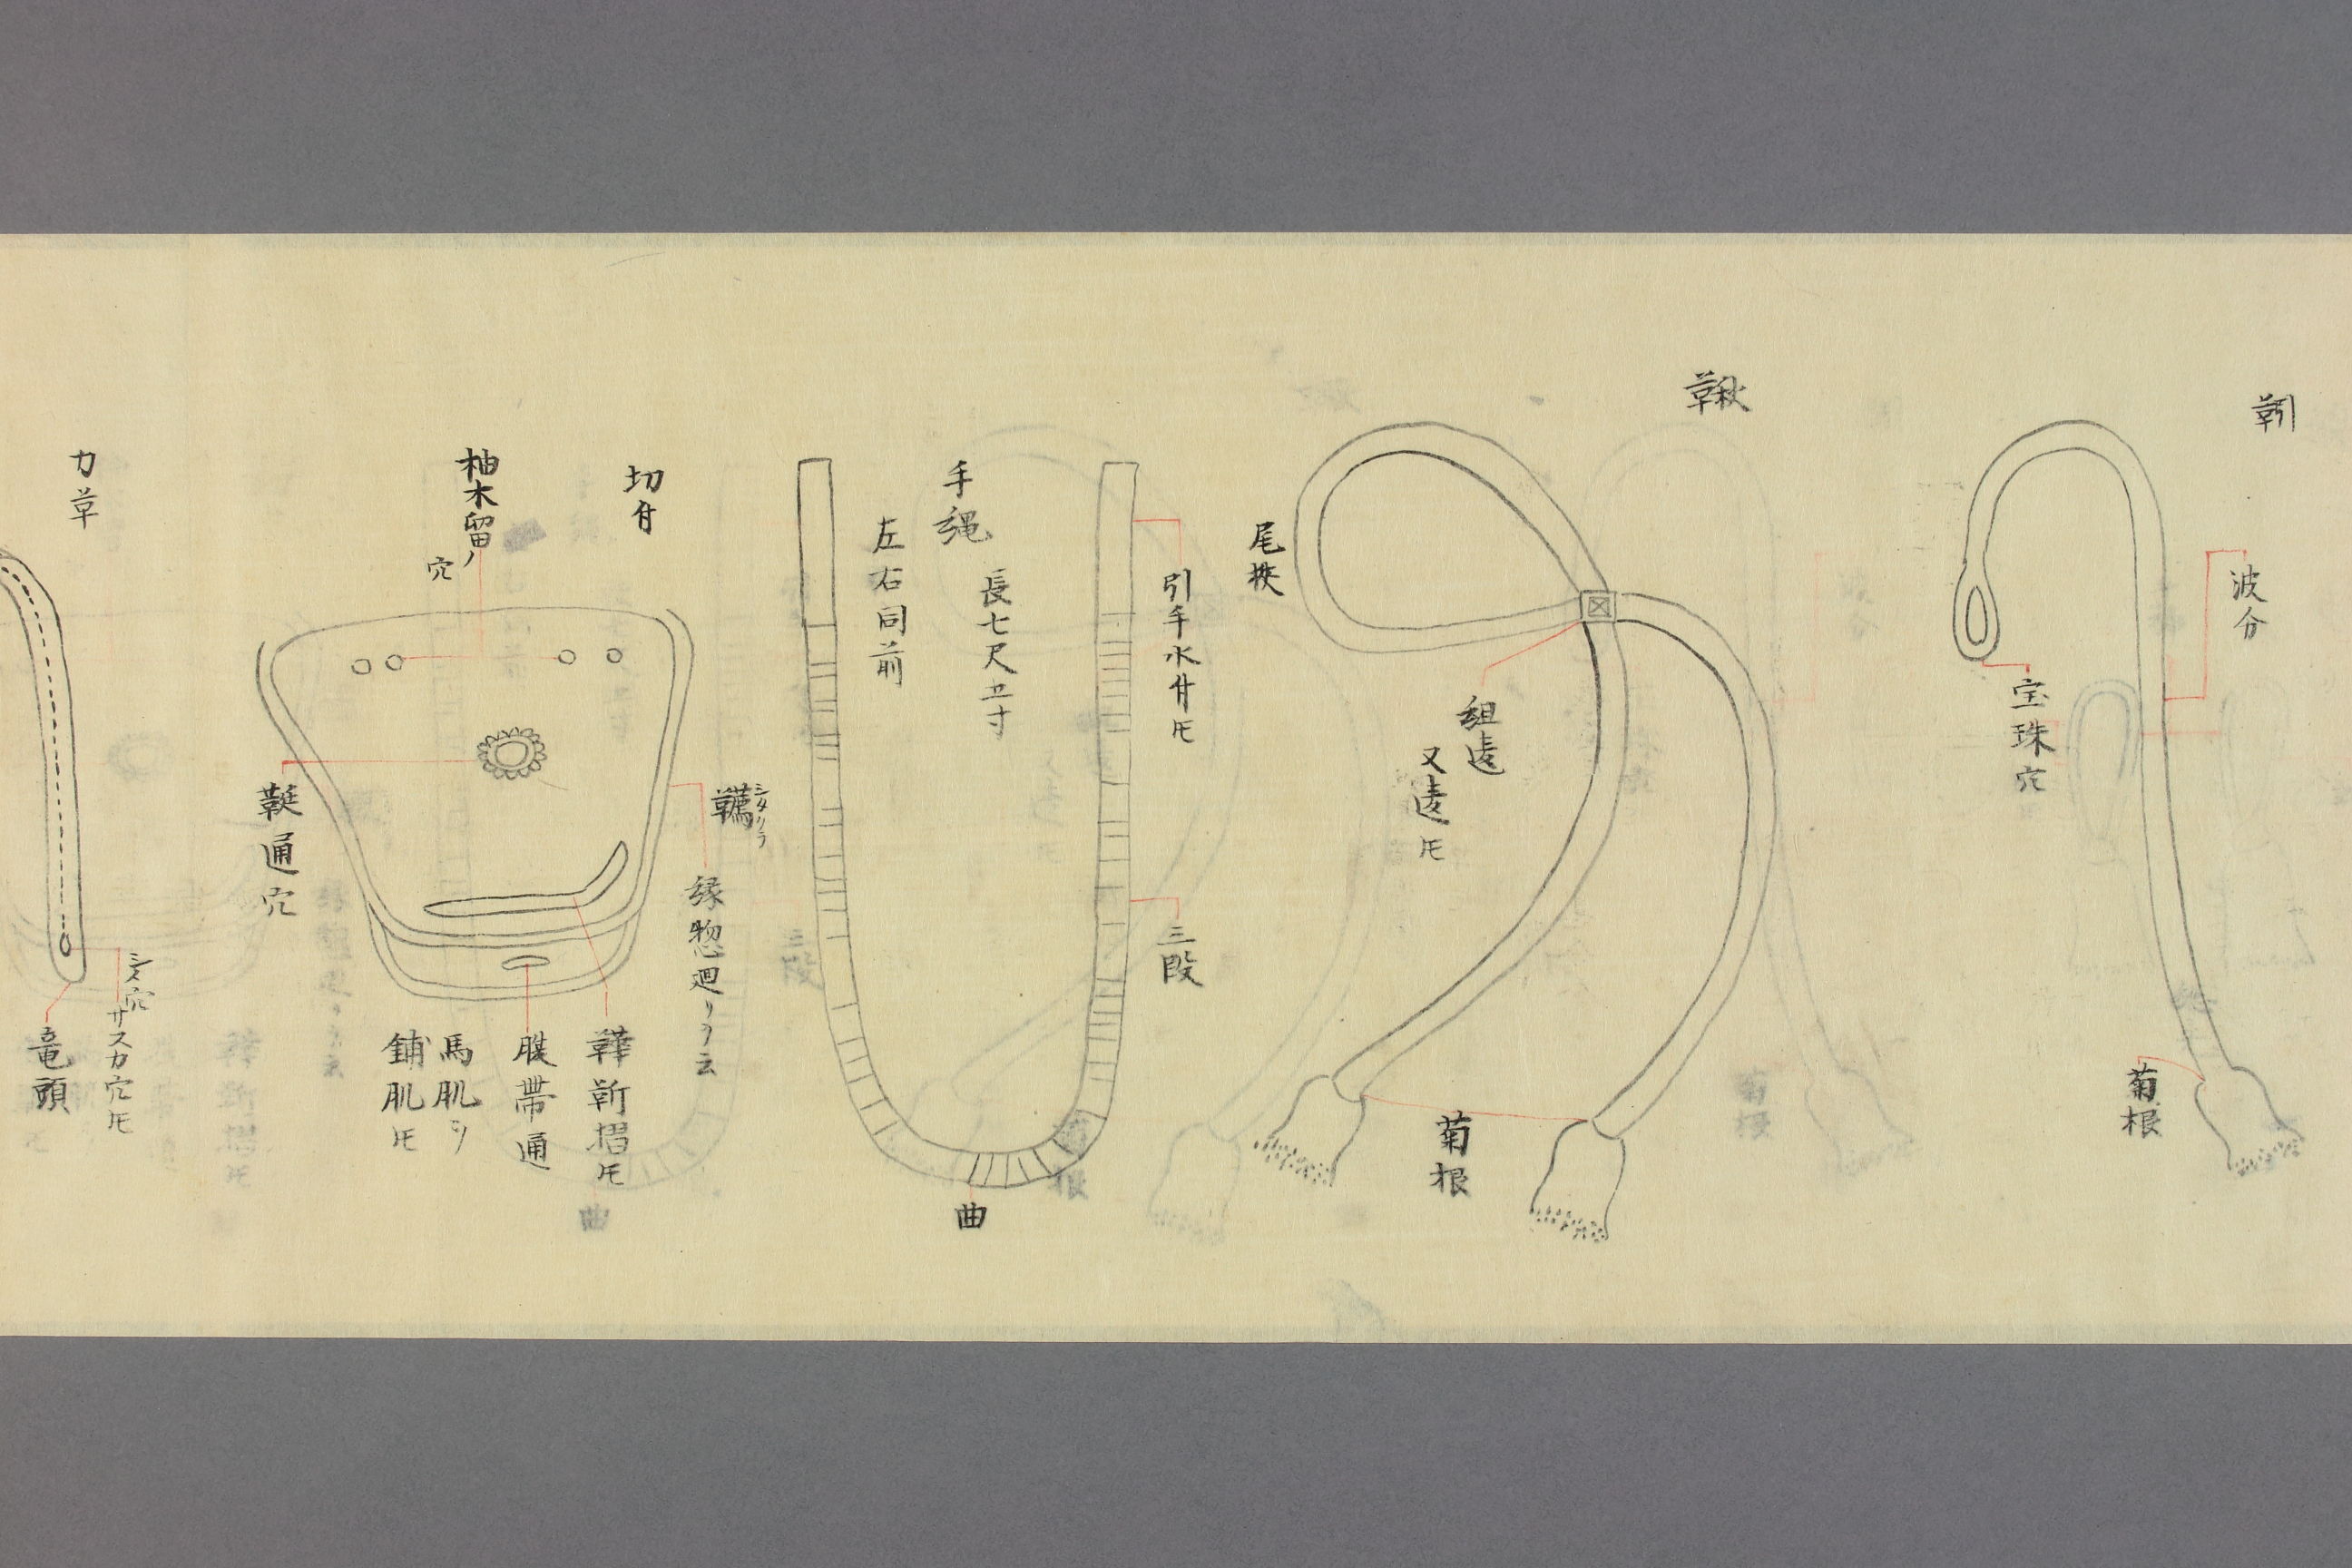 靷
波分
宝珠穴
菊根
鞦
尾挾
組違
又違トモ
菊根
手縄
長七尺五寸
左右同前
引手水付トモ
三段
曲
切付
柚木留ノ
穴
韉
シタクラ
縁惣廻リヲ云
鞓通穴
腹帯通
馬肌
鋪肌トモ
力革
サスカ穴トモ
竜頭